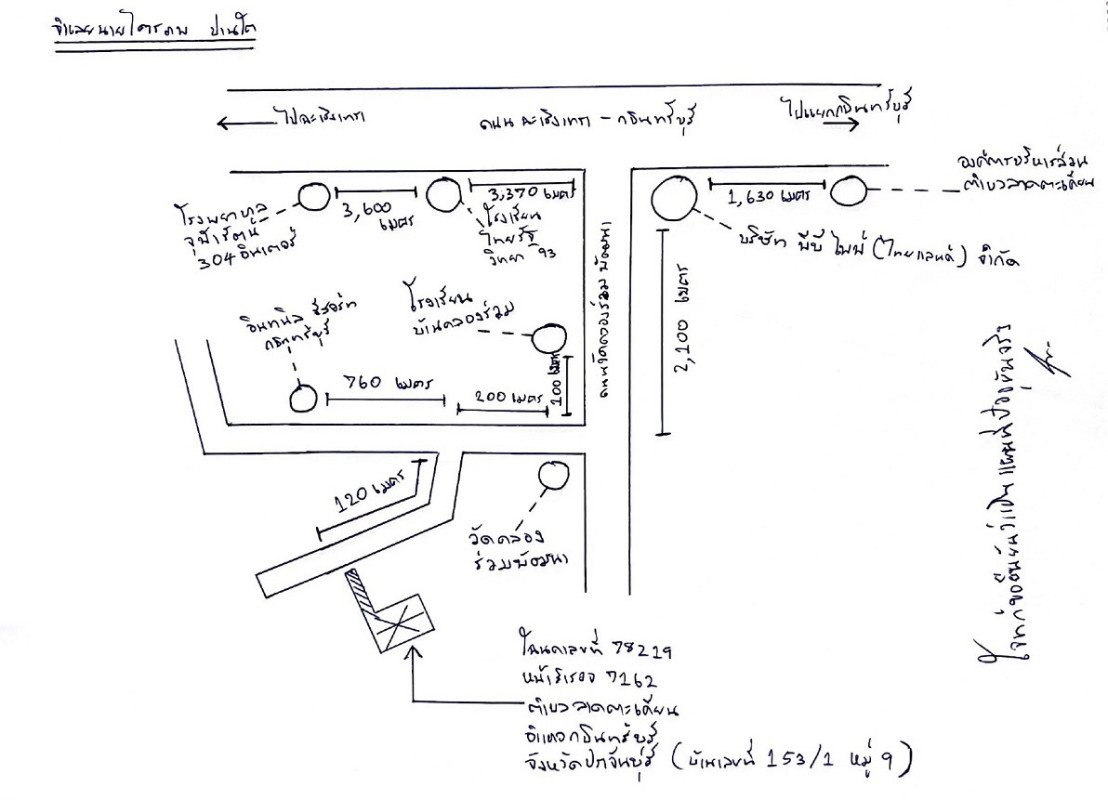 จำเลยนายไตรภพ ปานโต
ไปฉะเชิงเทรา
ถนน ฉะเชิงเทรา - กบินทร์บุรี
ไปแยกกบินทร์บุรี
องค์การบริหารส่วน
ตำบลลาดตะเคียน
1,630 เมตร
3,370 เมตร
3,600
เมตร
โรงพยาบาล
จุฬารัตน์
304 อินเตอร์
โรงเรียน
ไทยรัฐ
วิทยา 93
บริษัท พีบี ไพพ์ (ไทยแลนด์) จำกัด
ถนนวัดคลองร่วมพัฒนา
2,100 เมตร
โรงเรียน
บ้านคลองร่วม
อินทนิล รีสอร์ท
กบินทร์บุรี
760 เมตร
200 เมตร
100 เมตร
120 เมตร
วัดคลอง
ร่วมพัฒนา
โฉนดเลขที่ 78219
หน้าสำรวจ 7162
ตำบลลาดตะเคียน
อำเภอกบินทร์บุรี
จังหวัดปราจีนบุรี (บ้านเลขที่ 153/1 หมู่ 9)
โจทก์ขอยืนยันว่าเป็นแผนที่ป้จจุบันจริง